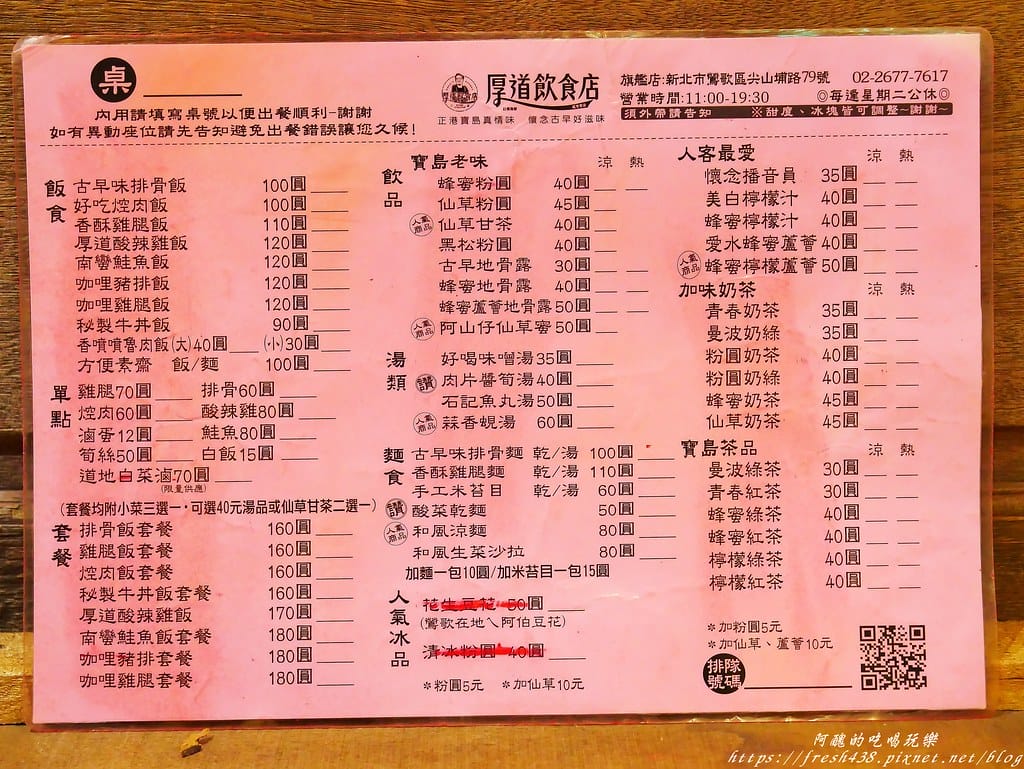 桌
內用請填寫桌號以便出餐順利-謝謝
如有異動座位請先告知避免出餐錯誤讓您久候!
厚道飲食店
正港寶島真情味 懷念古早好滋味
旗艦店:新北市鶯歌區尖山埔路79號 02-2677-7617
營業時間:11:00-19:30 ◎每逢星期二公休◎
須外帶請告知 ※甜度、冰塊皆可調整~謝謝~
飯食
古早味排骨飯 100圓
好吃焢肉飯 100圓
香酥雞腿飯 110圓
厚道酸辣雞飯 120圓
南蠻鮭魚飯 120圓
咖哩豬排飯 120圓
咖哩雞腿飯 120圓
秘製牛丼飯 90圓
香噴噴魯肉飯(大)40圓 (小)30圓
方便素齋 飯/麵 100圓
單點
雞腿70圓 排骨60圓
焢肉60圓 酸辣雞80圓
滷蛋12圓 鮭魚80圓
筍絲50圓 白飯15圓
道地白菜滷70圓
(限量供應)
(套餐均附小菜三選一·可選40元湯品或仙草甘茶二選一)
套餐
排骨飯套餐 160圓
雞腿飯套餐 160圓
焢肉飯套餐 160圓
秘製牛丼飯套餐 160圓
厚道酸辣雞飯 170圓
南蠻鮭魚飯套餐 180圓
咖哩豬排套餐 180圓
咖哩雞腿套餐 180圓
飲品
寶島老味 涼 熱
蜂蜜粉圓 40圓
仙草粉圓 45圓
人氣商品 仙草甘茶 40圓
黑松粉圓 40圓
古早地骨露 30圓
蜂蜜地骨露 40圓
蜂蜜蘆薈地骨露50圓
人氣商品 阿山仔仙草蜜50圓
湯類
好喝味噌湯35圓
讚 肉片醬筍湯40圓
石記魚丸湯50圓
人氣商品 蒜香蜆湯 60圓
麵食
古早味排骨麵 乾/湯 100圓
香酥雞腿麵 乾/湯 110圓
手工米苔目 乾/湯 60圓
讚 酸菜乾麵 50圓
人氣商品 和風涼麵 80圓
和風生菜沙拉 80圓
加麵一包10圓/加米苔目一包15圓
人氣冰品
花生豆花 50圓
(鶯歌在地ㄟ阿伯豆花)
清冰粉圓 40圓
*粉圓5元 *加仙草10元
人客最愛 涼 熱
懷念播音員 35圓
美白檸檬汁 40圓
蜂蜜檸檬汁 40圓
愛水蜂蜜蘆薈 40圓
人氣商品 蜂蜜檸檬蘆薈 50圓
加味奶茶 涼 熱
青春奶茶 35圓
曼波奶綠 35圓
粉圓奶茶 40圓
粉圓奶綠 40圓
蜂蜜奶茶 45圓
仙草奶茶 45圓
寶島茶品 涼 熱
曼波綠茶 30圓
青春紅茶 30圓
蜂蜜綠茶 40圓
蜂蜜紅茶 40圓
檸檬綠茶 40圓
檸檬紅茶 40圓
*加粉圓5元
*加仙草、蘆薈10元
排隊號碼
阿醜的吃喝玩樂
https://fresh438.pixnet.net/blog